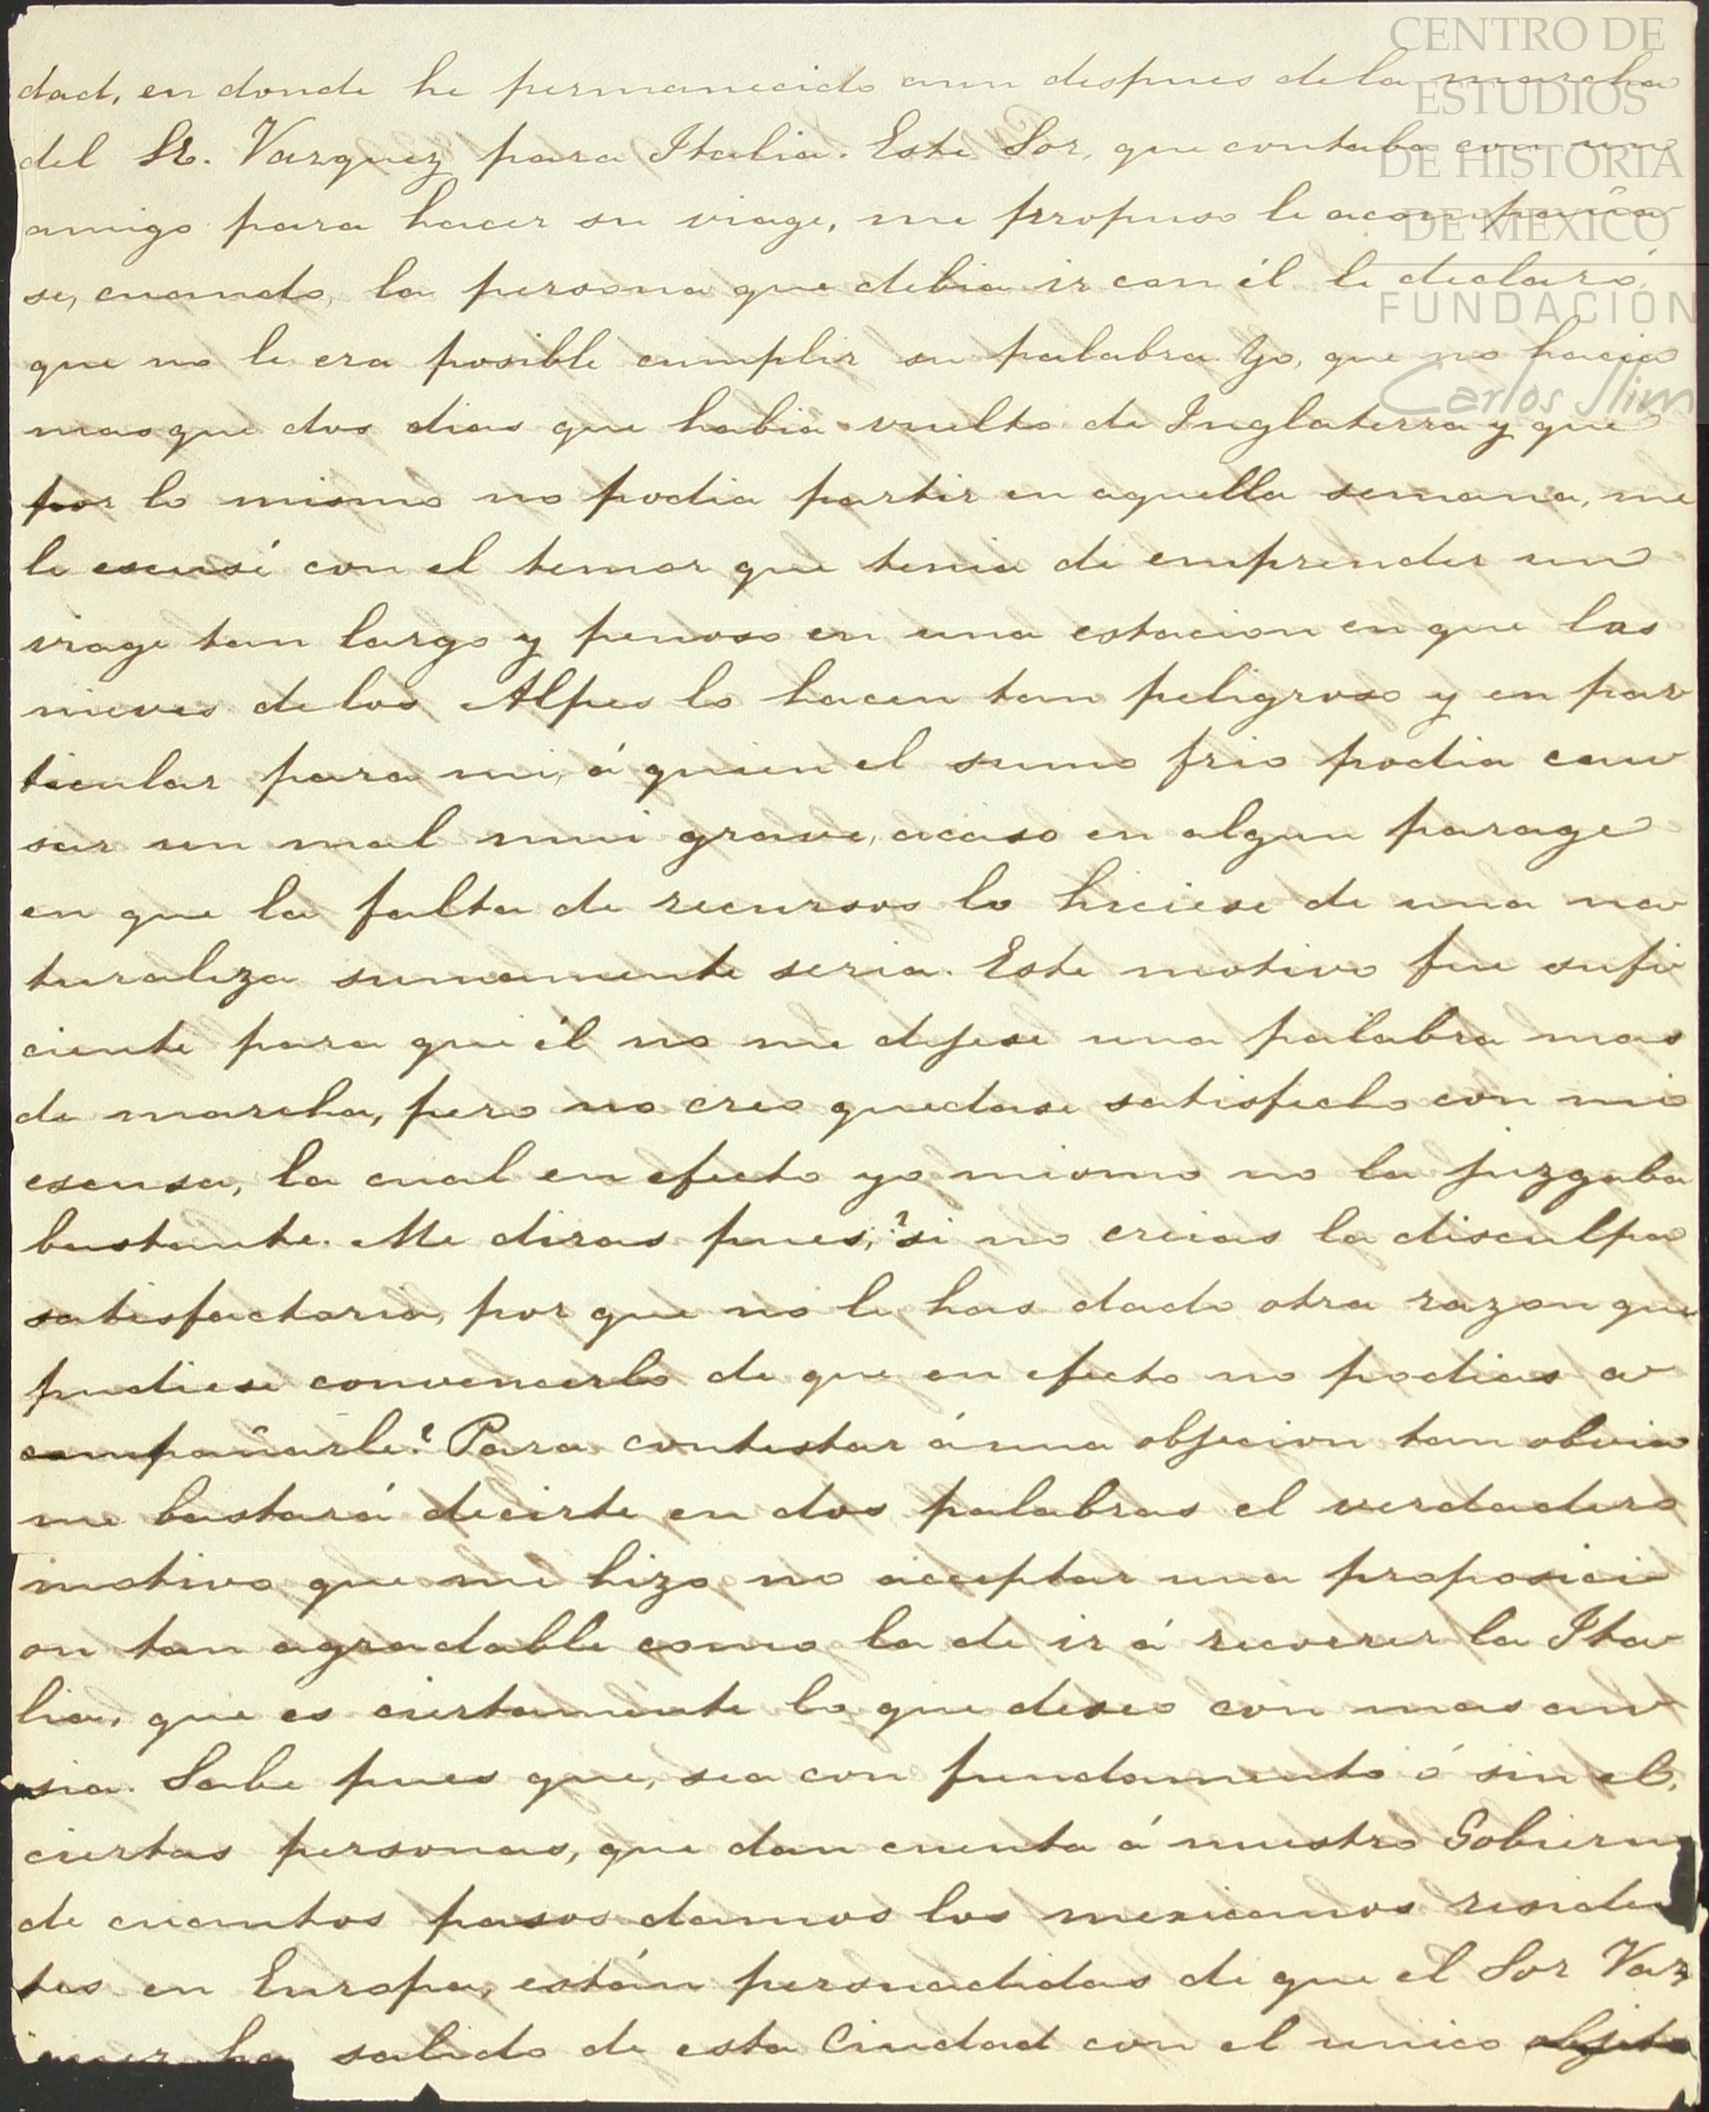 CENTRO DE
ESTUDIOS
DE HISTORIA
DE MEXICO
FUNDACIÓN
Carlos Slim
dad, en donde he permanecido aun despues de la marcha
del Sr. Vazquez para Italia. Este Sor, que contaba con un
amigo para hacer su viage, me propuso le acompaña
se, cuando, la persona que debia ir con él le declaró,
que no le era posible cumplir su palabra. Yo, que no hacia
mas que dos dias que habia vuelto de Inglaterra y que
por lo mismo no podia partir en aquella semana, me
le escusé con el temor que tenia de emprender un
viage tan largo y penoso en una estacion en que las
nieves de los Alpes lo hacen tan peligroso y en par
ticular para mi, á quien el sumo frio podia cau
sar un mal mui grave, acaso en algun parage
en que la falta de recursos lo hiciese de una na
turaleza sumamente seria. Este motivo fue sufi
ciente para que él no me dijese una palabra mas
de marcha, pero no creo quedase satisfecho con mi
escusa, la cual en efecto yo mismo no la juzgaba
bastante. Me diras pues, ?si no creias la disculpa
satisfactoria, por que no le has dado otra razon que
pudiese convencerlo de que en efecto no podias a
compañarle? Para contestar á una objecion tan obvia
me bastará decirte en dos palabras el verdadero
motivo que me hizo no aceptar una proposici
on tan agradable como la de ir á recorrer la Ita
lia, que es ciertamente lo que deseo con mas an
sia. Sabe pues que, sea con fundamento ó sin el,
ciertas personas, que dan cuenta á nuestro Gobiern
de cuantos pasos damos los mexicanos residen
tes en Europa, están persuadidas de que el Sor Vaz
quez ha salido de esta Ciudad con el unico objeto